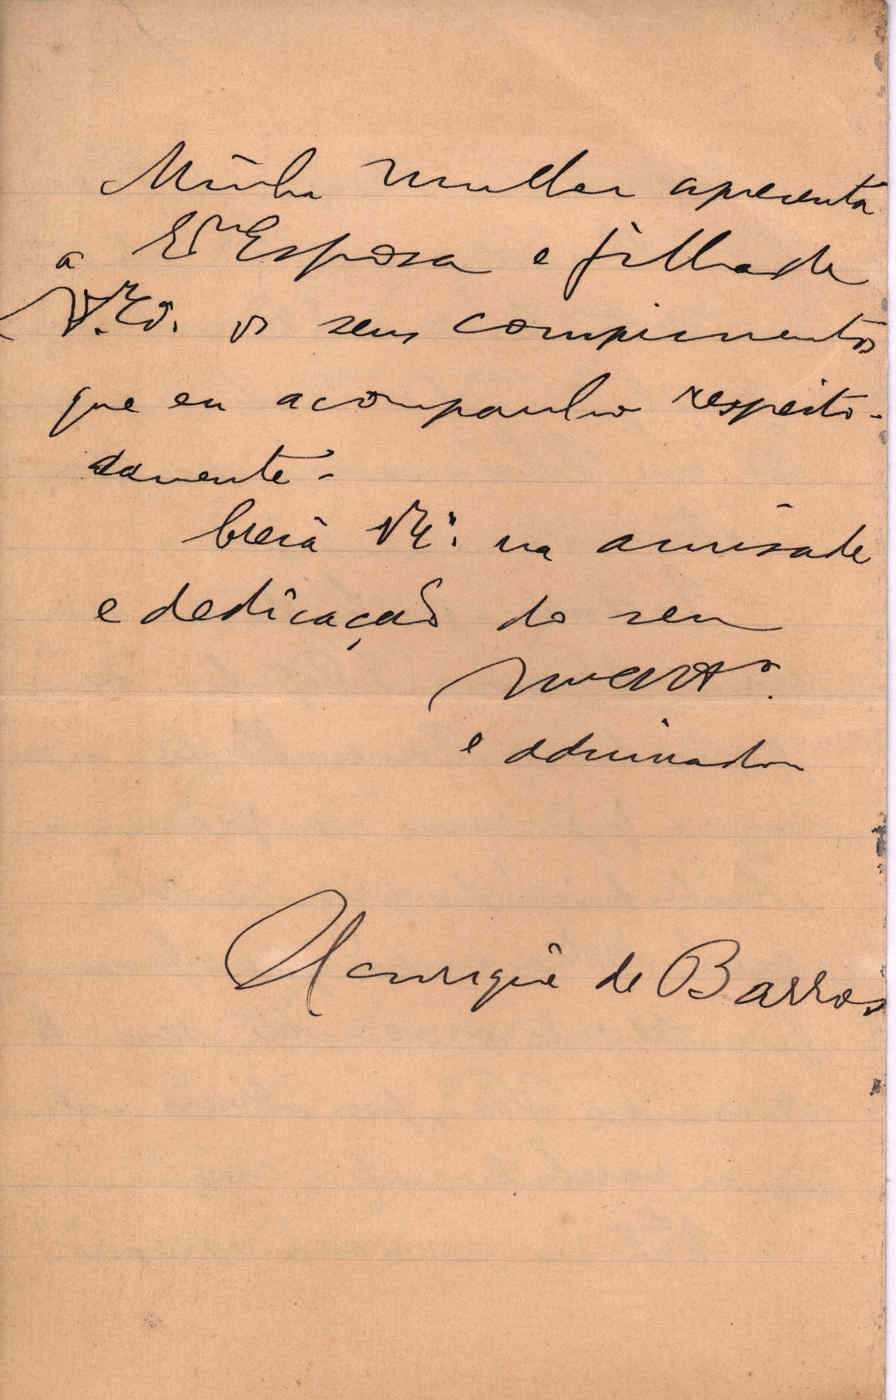 Minha mulher apresenta
a Ex.ma Esposa e filha de
V. Ex.ª os seus comprimentos
que eu acompanho respeito-
samente.
Creia V. Ex.ª na amisade
e dedicação do seu
m.to att.º
e admirador
Henrique de Barros